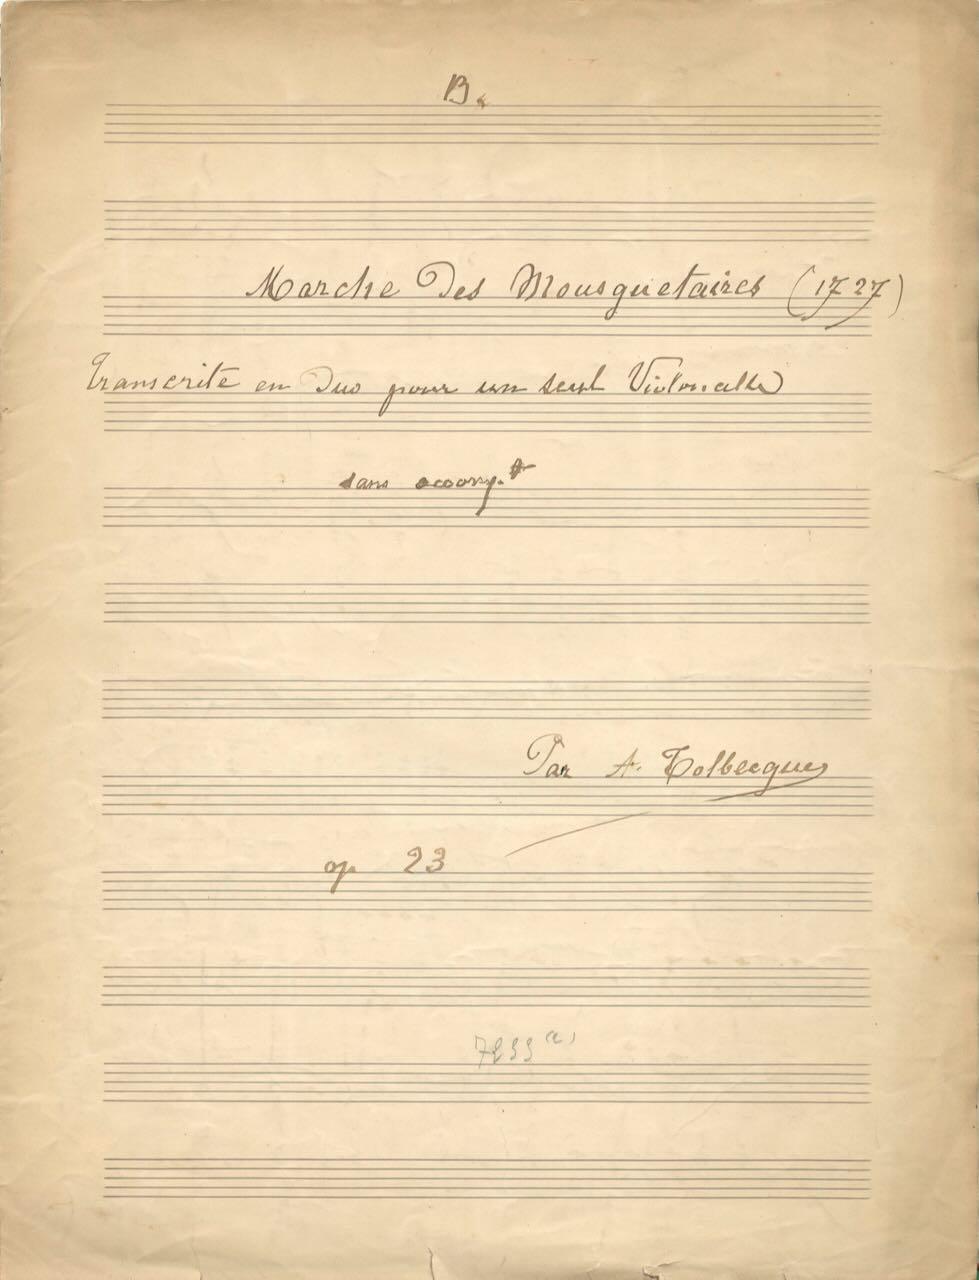 B.
Marche Des Mousquetaires (1727)
Transcrite en Duo pour un seul Violoncelle
sans accomp.t
Par A. Tolbecque
op 23